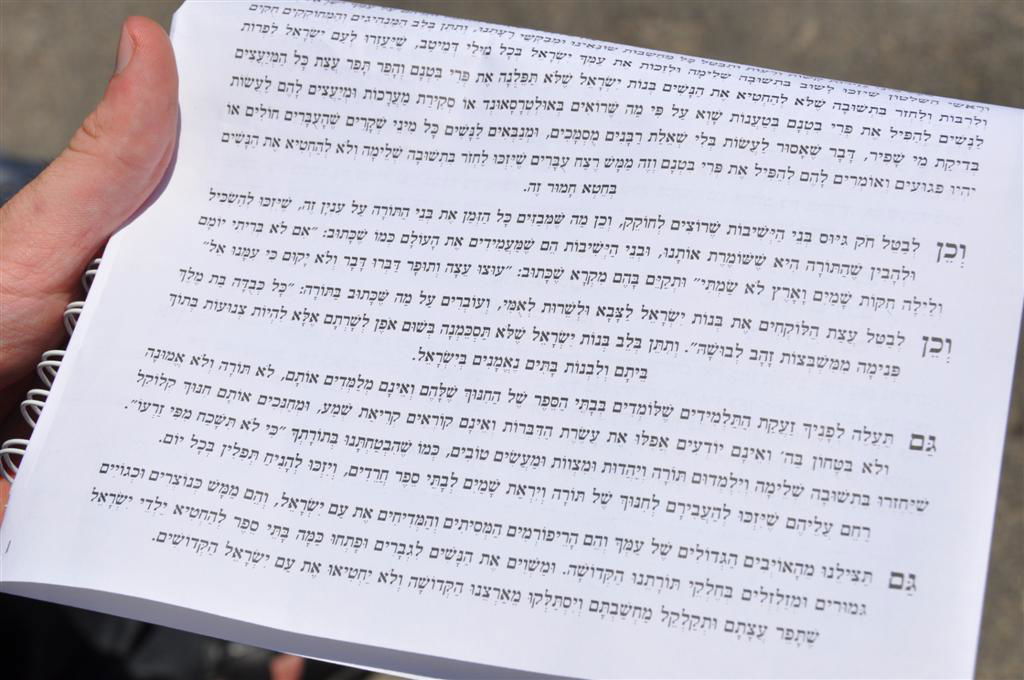 וּלְרַבּוֹת וְלַחְזֹר בִּתְשׁוּבָה שֶׁלֹּא לְהַחְטִיא אֶת הַנָּשִׁים בְּנוֹת יִשְׂרָאֵל שֶׁלֹּא תַּפֵּלְנָה אֶת פְּרִי בִטְנָם וְהָפֵר תָּפֵר עֲצַת כָּל הַמְיַעֲצִים
לְנָשִׁים לְהַפִּיל אֶת פְּרִי בִטְנָם בְּטַעֲנוֹת שָׁוְא עַל פִּי מַה שֶּׁרוֹאִים בְּאוּלְטְרָסָאוּנְד אוֹ סְקִירַת מַעֲרָכוֹת וּמְיַעֲצִים לָהֶם לַעֲשׂוֹת
בְּדִיקַת מֵי שָׁפִיר, דָּבָר שֶׁאָסוּר לַעֲשׂוֹת בְּלִי שְׁאֵלַת רַבָּנִים מֻסְמָכִים, וּמְנַבְּאִים לְנָשִׁים כָּל מִינֵי שְׁקָרִים שֶׁהָעֻבָּרִים חוֹלִים אוֹ
יִהְיוּ פְּגוּעִים וְאוֹמְרִים לָהֶם לְהַפִּיל אֶת פְּרִי בִטְנָם וְזֶה מַמָּשׁ רֶצַח עֻבָּרִים שֶׁיִּזְכּוּ לַחְזֹר בִּתְשׁוּבָה שְׁלֵימָה וְלֹא לְהַחְטִיא אֶת הַנָּשִׁים
בְּחֵטְא חָמוּר זֶה.
וְכֵן לְבַטֵּל חֹק גִּיּוּס בְּנֵי הַיְשִׁיבוֹת שֶׁרוֹצִים לְחוֹקֵק, וְכֵן מַה שֶּׁמְּבַזִּים כָּל הַזְּמַן אֶת בְּנֵי הַתּוֹרָה עַל עִנְיָן זֶה, שֶׁיִּזְכּוּ לְהַשְׂכִּיל
וּלְהָבִין שֶׁהַתּוֹרָה הִיא שֶׁשּׁוֹמֶרֶת אוֹתָנוּ, וּבְנֵי הַיְשִׁיבוֹת הֵם שֶׁמַּעֲמִידִים אֶת הָעוֹלָם כְּמוֹ שֶׁכָּתוּב: "אִם לֹא בְרִיתִי יוֹמָם
וְלַיְלָה חֻקּוֹת שָׁמַיִם וָאָרֶץ לֹא שָׂמְתִּי" וּתְקַיֵּם בָּהֶם מִקְרָא שֶׁכָּתוּב: "עוּצוּ עֵצָה וְתוּפָר דַּבְּרוּ דָבָר וְלֹא יָקוּם כִּי עִמָּנוּ אֵל"
וְכֵן לְבַטֵּל עֲצַת הַלּוֹקְחִים אֶת בְּנוֹת יִשְׂרָאֵל לַצָּבָא וּלְשֵׁרוּת לְאֻמִּי, וְעוֹבְרִים עַל מַה שֶּׁכָּתוּב בַּתּוֹרָה: "כָּל כְּבֻדָּה בַת מֶלֶךְ
פְּנִימָה מִמִּשְׁבְּצוֹת זָהָב לְבוּשָׁהּ". וְתִתֵּן בְּלֵב בְּנוֹת יִשְׂרָאֵל שֶׁלֹּא תַּסְכֵּמְנָה בְּשׁוּם אֹפֶן לְשָׁרְתָם אֶלָּא לִהְיוֹת צְנוּעוֹת בְּתוֹךְ
בֵּיתָם וְלִבְנוֹת בָּתִּים נֶאֱמָנִים בְּיִשְׂרָאֵל.
גַּם תַּעֲלֶה לְפָנֶיךָ זַעֲקַת הַתַּלְמִידִים שֶׁלּוֹמְדִים בְּבָתֵּי הַסֵּפֶר שֶׁל הַחִנּוּךְ שֶׁלָּהֶם וְאֵינָם מְלַמְּדִים אוֹתָם, לֹא תּוֹרָה וְלֹא אֱמוּנָה
וְלֹא בִּטָּחוֹן בַּה' וְאֵינָם יוֹדְעִים אֲפִלּוּ אֶת עֲשֶׂרֶת הַדִּבְּרוֹת וְאֵינָם קוֹרְאִים קְרִיאַת שְׁמַע, וּמְחַנְּכִים אוֹתָם חִנּוּךְ קְלוֹקֵל
שֶׁיַּחְזְרוּ בִּתְשׁוּבָה שְׁלֵימָה וְיִלְמְדוּם תּוֹרָה וְיַהֲדוּת וּמִצְווֹת וּמַעֲשִׂים טוֹבִים, כְּמוֹ שֶׁהִבְטַחְתָּנוּ בְּתוֹרָתְךָ "כִּי לֹא תִשָּׁכַח מִפִּי זַרְעוֹ".
רַחֵם עֲלֵיהֶם שֶׁיִּזְכּוּ לְהַעֲבִירָם לְחִנּוּךְ שֶׁל תּוֹרָה וְיִרְאַת שָׁמַיִם לְבָתֵּי סֵפֶר חֲרֵדִים, וְיִזְכּוּ לְהָנִיחַ תְּפִלִּין בְּכָל יוֹם.
גַּם תַּצִּילֵנוּ מֵהָאוֹיְבִים הַגְּדוֹלִים שֶׁל עַמְּךָ וְהֵם הָרֵיפוֹרְמִים הַמְּסִיתִים וְהַמַּדִּיחִים אֶת עַם יִשְׂרָאֵל, וְהֵם מַמָּשׁ כְּנוֹצְרִים וּכְגוֹיִים
גְּמוּרִים וּמְזַלְזְלִים בְּחֶלְקֵי תּוֹרָתֵנוּ הַקְּדוֹשָׁה. וּמַשְׁוִים אֶת הַנָּשִׁים לִגְבָרִים וּפָתְחוּ כַּמָּה בָּתֵּי סֵפֶר לְהַחְטִיא יַלְדֵי יִשְׂרָאֵל
שֶׁתָּפֵר עֲצָתָם וּתְקַלְקֵל מַחְשַׁבְתָּם וְיִסְתַּלְּקוּ מֵאַרְצֵנוּ הַקְּדוֹשָׁה וְלֹא יַחְטִיאוּ אֶת עַם יִשְׂרָאֵל הַקְּדוֹשִׁים.